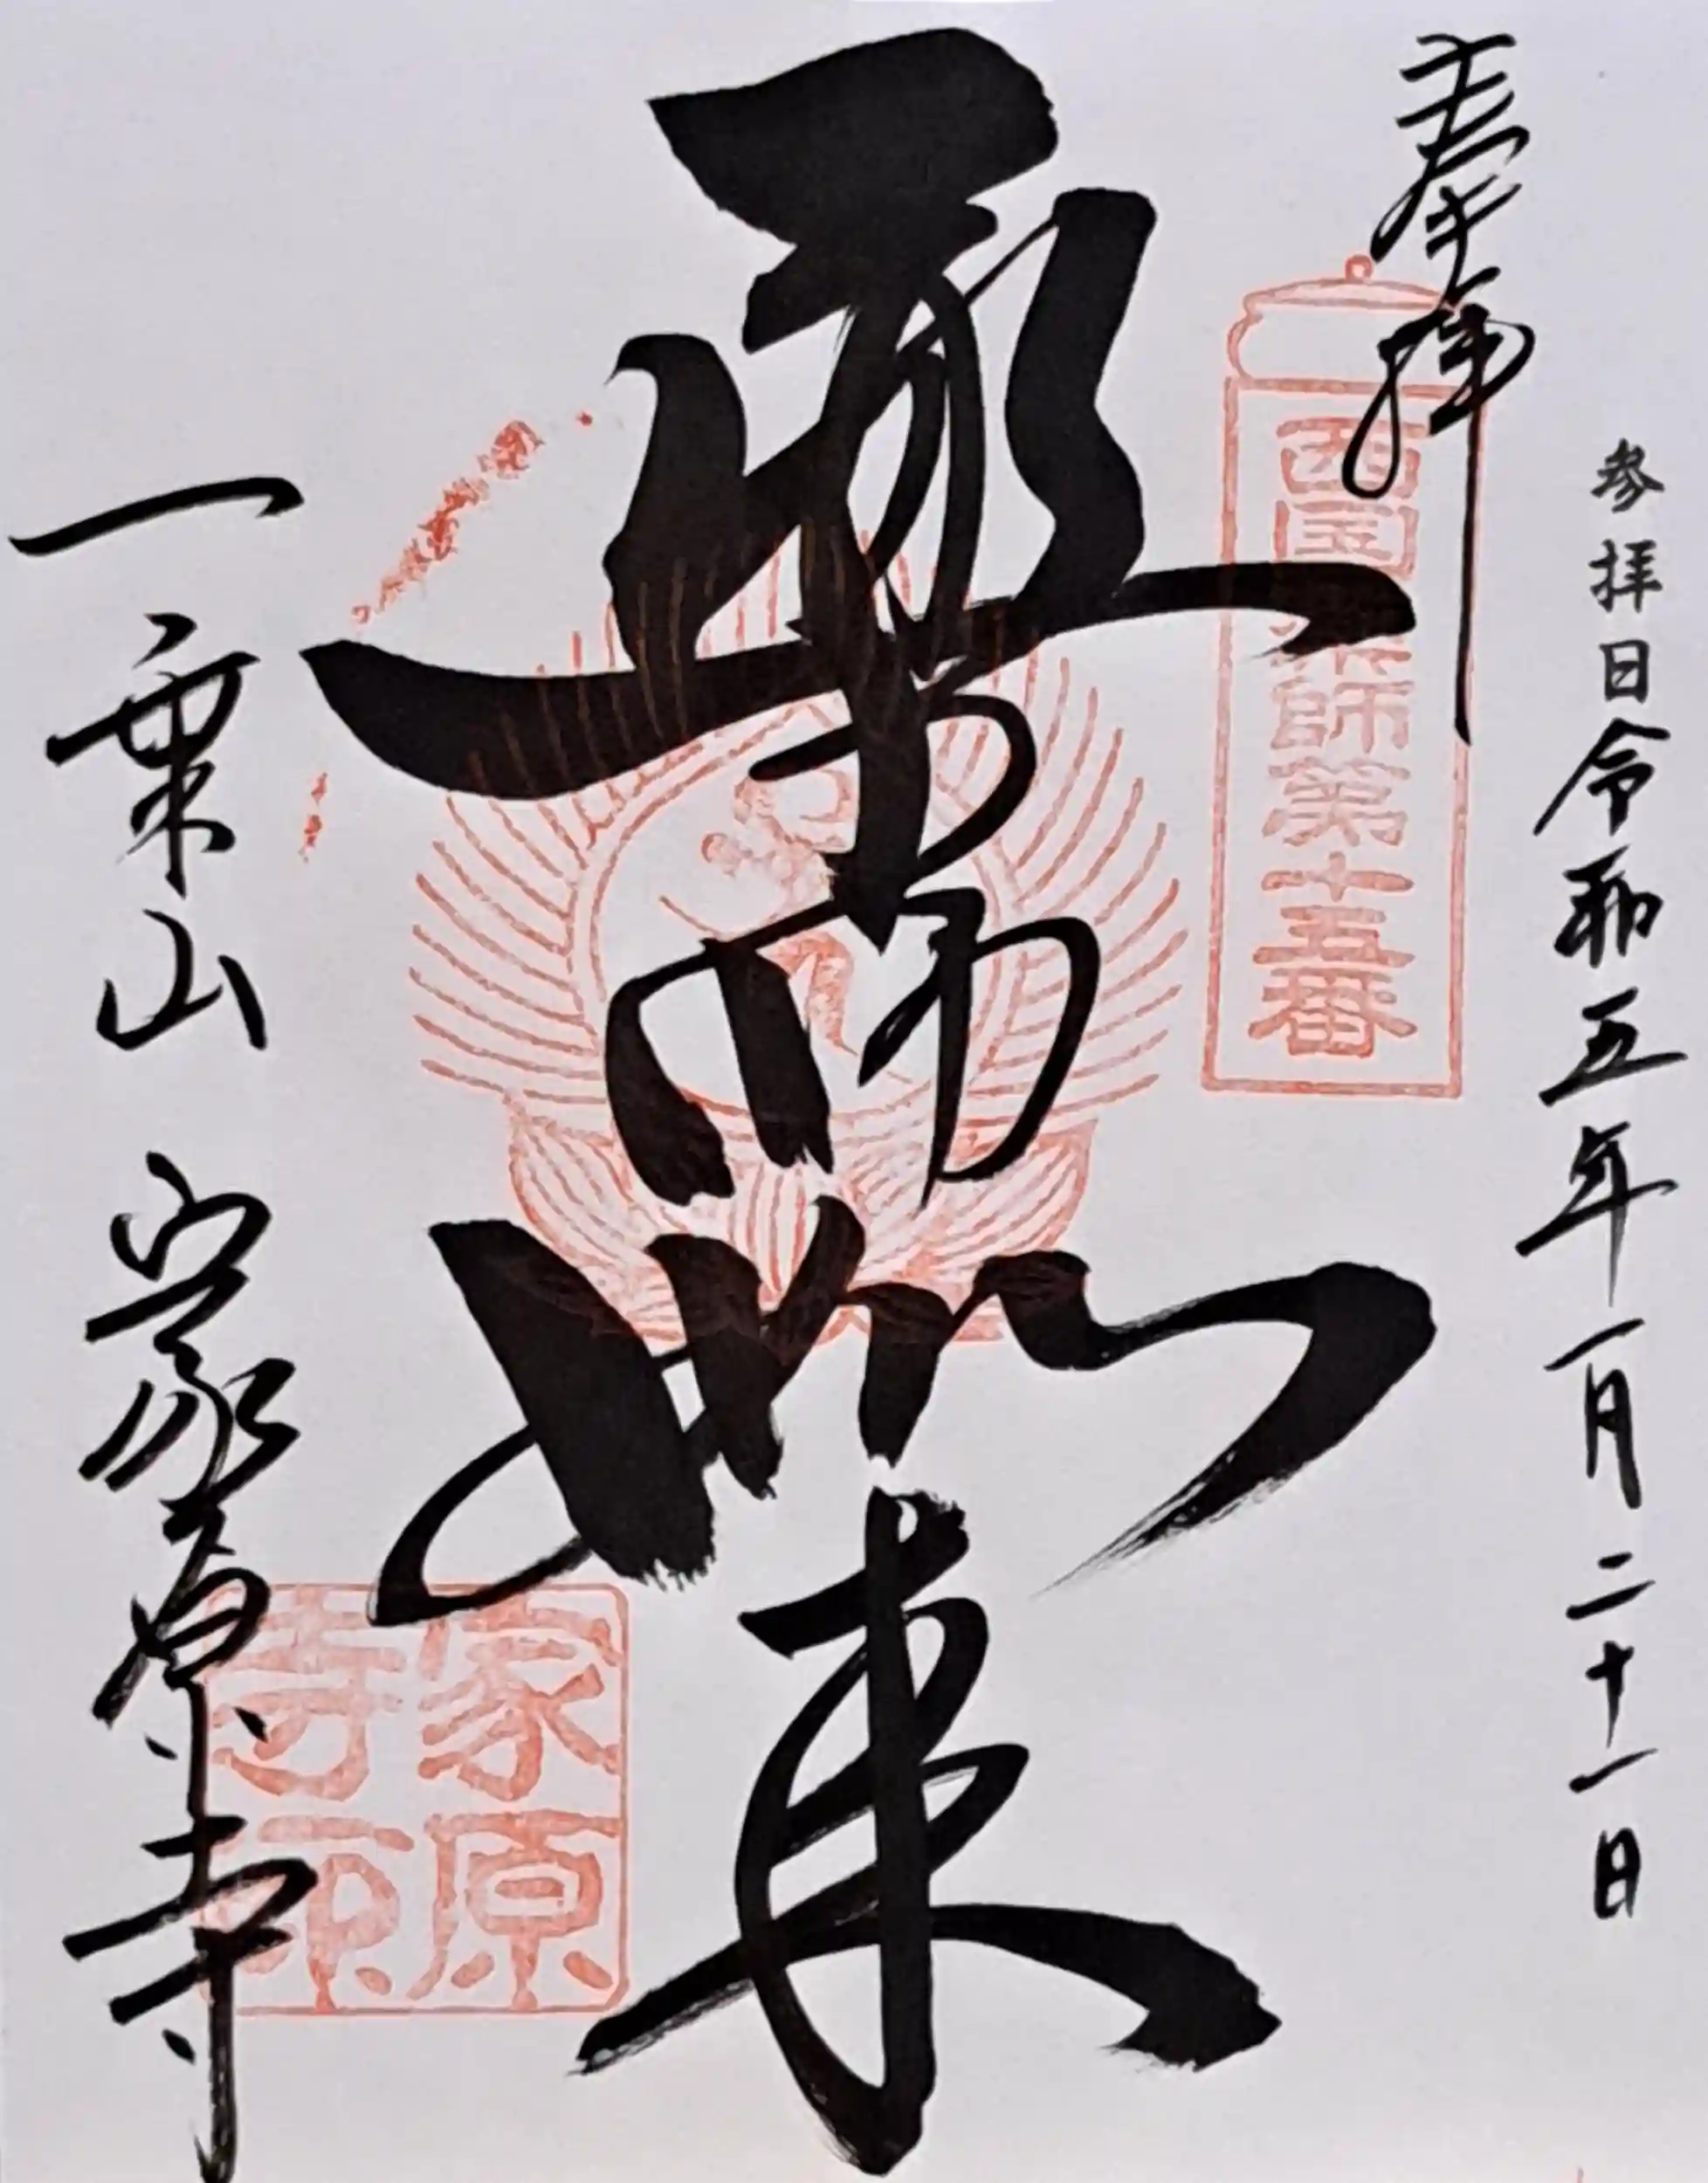 奉拝
参拝日令和五年一月二十一日
西国薬師第十五番
薬師如来
一乗山 家原寺
家原寺印